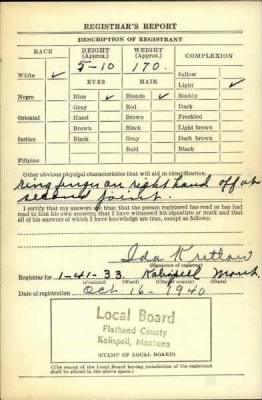 REGISTRAR'S REPORT
DESCRIPTION OF REGISTRANT
RACE HEIGHT (Approx.) WEIGHT (Approx.) COMPLEXION
5-10 170. Sallow
White ✓ EYES HAIR Light ✓
Negro Blue ✓ Blonde ✓ Ruddy
Gray Red Dark
Oriental Hazel Brown Freckled
Brown Black Light brown
Indian Black Gray Dark brown
Bald Black
Filipino
Other obvious physical characteristics that will aid in identification
ring finger on right hand off at
second joint.
I certify that my answers are true; that the person registered has read or has had
read to him his own answers; that I have witnessed his signature or mark and that
all of his answers of which I have knowledge are true, except as follows:
Ida
(Signature of registrar)
Registrar for 1-41-33 Kalispell Mont
(Precinct) (Ward) (City or county) (State)
Date of registration Oct 16 - 1940
Local Board
Flathead County
Kalispell, Montana
(STAMP OF LOCAL BOARD)
(The stamp of the Local Board having jurisdiction of the registrant
shall be placed in the above space.)